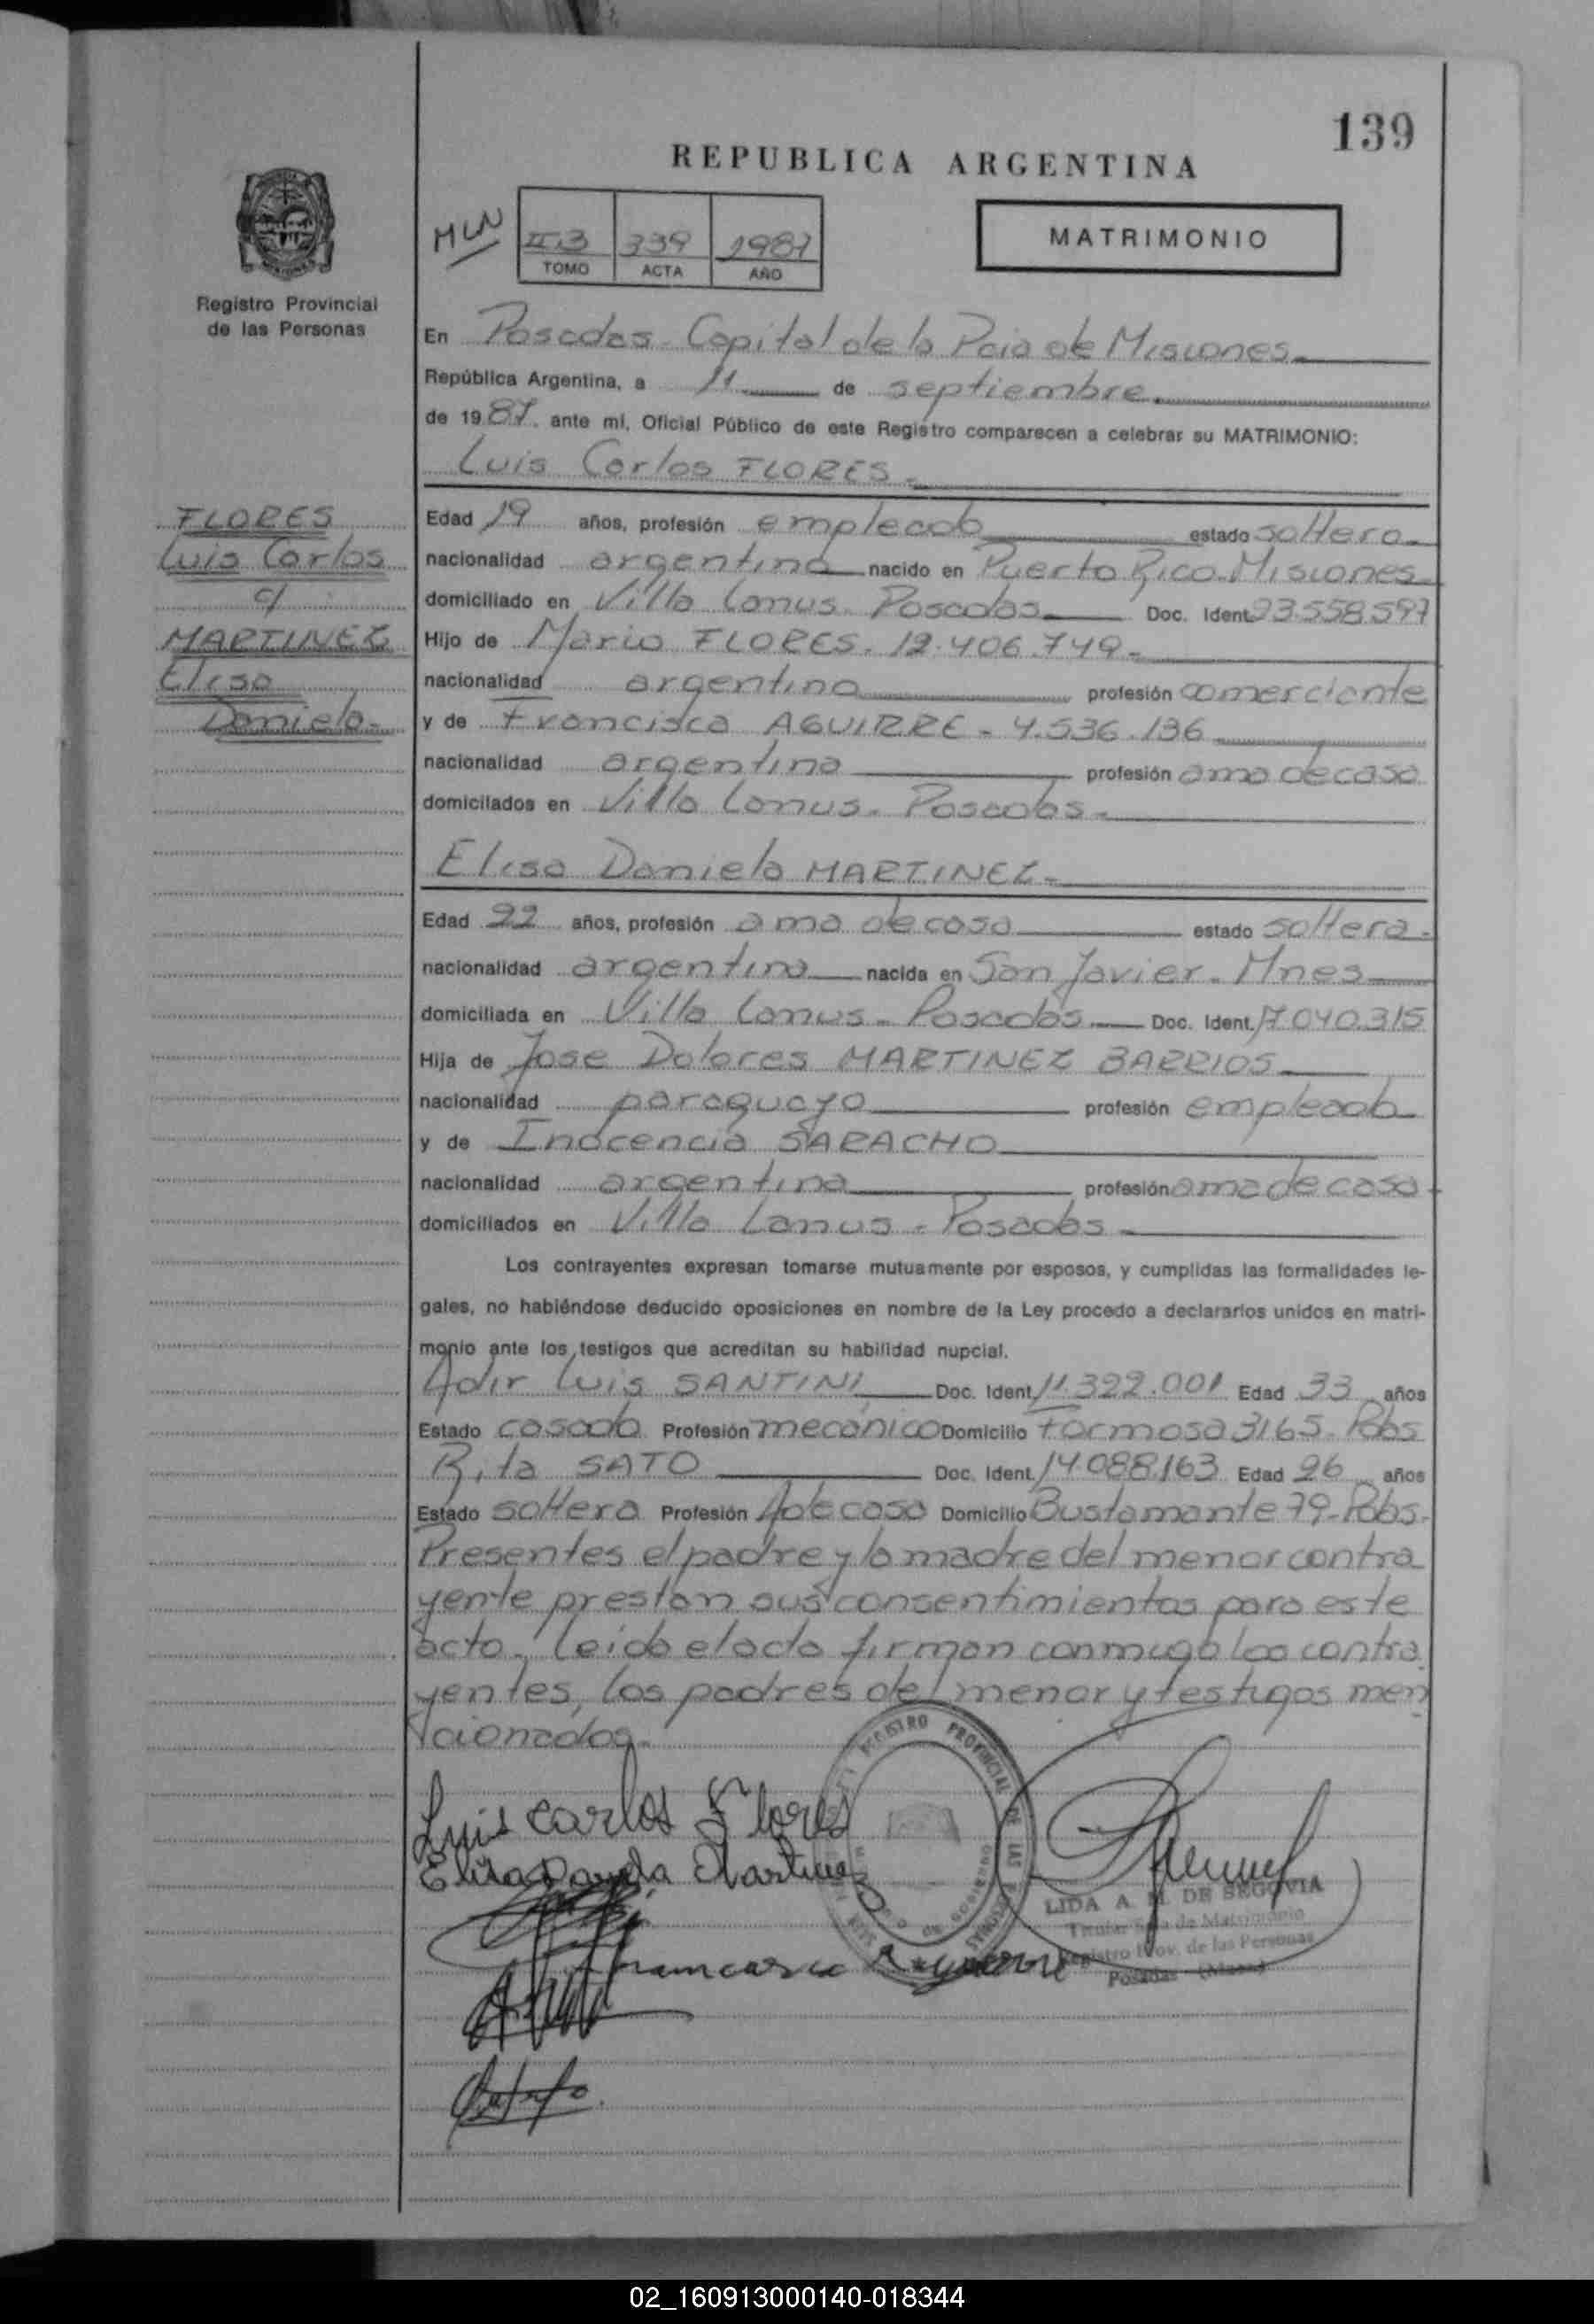 139
REPUBLICA ARGENTINA
MLN
II.3 339 1987
TOMO ACTA AÑO
MATRIMONIO
Registro Provincial
de las Personas
En Posadas - Capital de la Pcia de Misiones
República Argentina, a 11 de septiembre
de 1987. ante mí, Oficial Público de este Registro comparecen a celebrar su MATRIMONIO:
Luis Carlos FLORES
FLORES
Luis Carlos
c/
MARTINEZ
Elisa
Daniela
Edad 19 años, profesión empleado estado soltero
nacionalidad argentina nacido en Puerto Rico. Misiones
domiciliado en Villa Lanus - Posadas Doc. Ident. 23.558.597
Hijo de Mario FLORES. 12.406.749
nacionalidad argentina profesión comerciante
y de Francisca AGUIRRE - 4.536.136
nacionalidad argentina profesión ama de casa
domicilados en Villa Lanus - Posadas
Elisa Daniela MARTINEZ
Edad 22 años, profesión ama de casa estado soltera
nacionalidad argentina nacida en San Javier - Mnes
domiciliada en Villa Lanus - Posadas Doc. Ident. 17.040.315
Hija de Jose Dolores MARTINEZ BARRIOS
nacionalidad paraguaya profesión empleado
y de Inocencia SARACHO
nacionalidad argentina profesión ama de casa
domiciliados en Villa Lanus - Posadas
Los contrayentes expresan tomarse mutuamente por esposos, y cumplidas las formalidades le-
gales, no habiéndose deducido oposiciones en nombre de la Ley procedo a declararlos unidos en matri-
monio ante los testigos que acreditan su habilidad nupcial.
Adir Luis SANTINI Doc. Ident. 11.322.001 Edad 33 años
Estado casado Profesión mecánico Domicilio Formosa 3165 - Pdas
Rita SATO Doc. Ident. 14.088.163 Edad 26 años
Estado soltera Profesión A de casa Domicilio Bustamante 79 - Pdas
Presentes el padre y la madre del menor contra
yente prestan sus consentimientos para este
acto. Leida el acta firman conmigo los contra
yentes, los padres del menor y testigos men
cionados
REGISTRO PROVINCIAL DE LAS PERSONAS
Luis Carlos Flores
Elisa Daniela Martinez
LIDA A. M. DE SEGOVIA
Titular Sala de Matrimonio
Registro Prov. de las Personas
Posadas (Mnes)
Francisca Aguirre
02_160913000140-018344